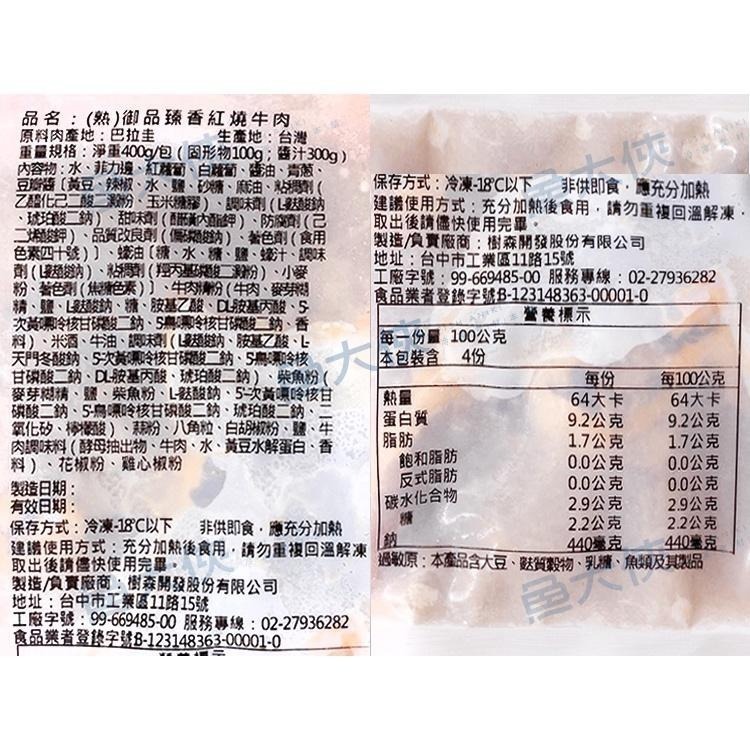 品名：(熟)御品臻香紅燒牛肉
原料肉產地：巴拉圭 生產地：台灣
重量規格：淨重400g/包（固形物100g；醬汁300g）
內容物：水、菲力邊、紅蘿蔔、白蘿蔔、醬油、青蔥、
豆瓣醬〔黃豆、辣椒、水、鹽、砂糖、麻油、粘稠劑（
乙醯化己二酸二澱粉、玉米糖膠）、調味劑（L-麩酸鈉
、琥珀酸二鈉）、甜味劑（醋磺內酯鉀）、防腐劑（己
二烯酸鉀）、品質改良劑（偏磷酸鈉）、著色劑（食用
色素四十號）〕、蠔油〔糖、水、糖、鹽、蠔汁、調味
劑（L-麩酸鈉）、粘稠劑（羥丙基磷酸二澱粉）、小麥
粉、著色劑（焦糖色素）〕、牛肉精粉（牛肉、麥芽糊
精、鹽、L-麩酸鈉、糖、胺基乙酸、DL-胺基丙酸、5'-
次黃嘌呤核苷磷酸二鈉、5'-鳥嘌呤核苷磷酸二鈉、香
料）、米酒、牛油、調味劑（L-麩酸鈉、胺基乙酸、L-
天門冬酸鈉、5'-次黃嘌呤核苷磷酸二鈉、5'-鳥嘌呤核
苷磷酸二鈉、DL-胺基丙酸、琥珀酸二鈉）、柴魚粉（
麥芽糊精、鹽、柴魚粉、L-麩酸鈉、5'-次黃嘌呤核苷
磷酸二鈉、5'-鳥嘌呤核苷磷酸二鈉、琥珀酸二鈉、二
氧化矽、檸檬酸）、蒜粉、八角粒、白胡椒粉、鹽、牛
肉調味料（酵母抽出物、牛肉、水、黃豆水解蛋白、香
料）、花椒粉、雞心椒粉
製造日期：
有效日期：
保存方式：冷凍-18℃以下 非供即食，應充分加熱
建議使用方式：充分加熱後食用，請勿重複回溫解凍
取出後請儘快使用完畢。
製造/負責廠商：樹森開發股份有限公司
地址：台中市工業區11路15號
工廠字號：99-669485-00 服務專線：02-27936282
食品業者登錄字號B-123148363-00001-0
營養標示
保存方式：冷凍-18℃以下 非供即食，應充分加熱
建議使用方式：充分加熱後食用，請勿重複回溫解凍，
取出後請儘快使用完畢。
製造/負責廠商：樹森開發股份有限公司
地址：台中市工業區11路15號
工廠字號：99-669485-00 服務專線：02-27936282
食品業者登錄字號B-123148363-00001-0
營養標示
每一份量 100公克
本包裝含 4份
每份 每100公克
熱量 64大卡 64大卡
蛋白質 9.2公克 9.2公克
脂肪 1.7公克 1.7公克
飽和脂肪 0.0公克 0.0公克
反式脂肪 0.0公克 0.0公克
碳水化合物 2.9公克 2.9公克
糖 2.2公克 2.2公克
鈉 440毫克 440毫克
過敏原：本產品含大豆、麩質穀物、乳糖、魚類及其製品
魚大俠